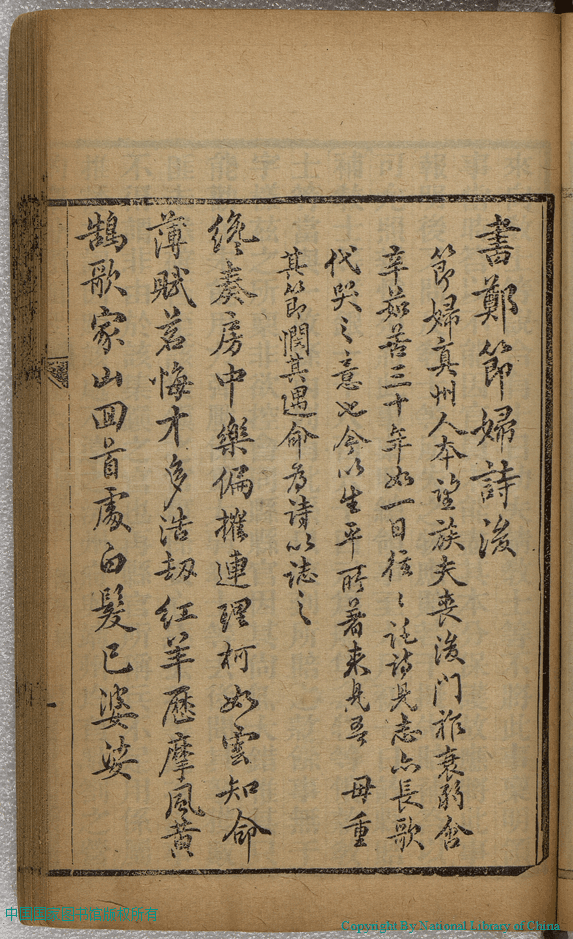 書鄭節婦詩後
節婦真州人本望族夫喪後門祚衰弱含
辛茹苦三十年如一日往〻託詩見志亦長歌
代哭之意也今以生平所著来見吾 毋重
其節憫其遇命為詩以誌之
纔奏房中樂偏摧連理柯如雲知命
薄賦茗悔才多浩劫紅羊歷摩風黃
鵠歌家山回首處白髮已婆娑
Copyright By National Library of China